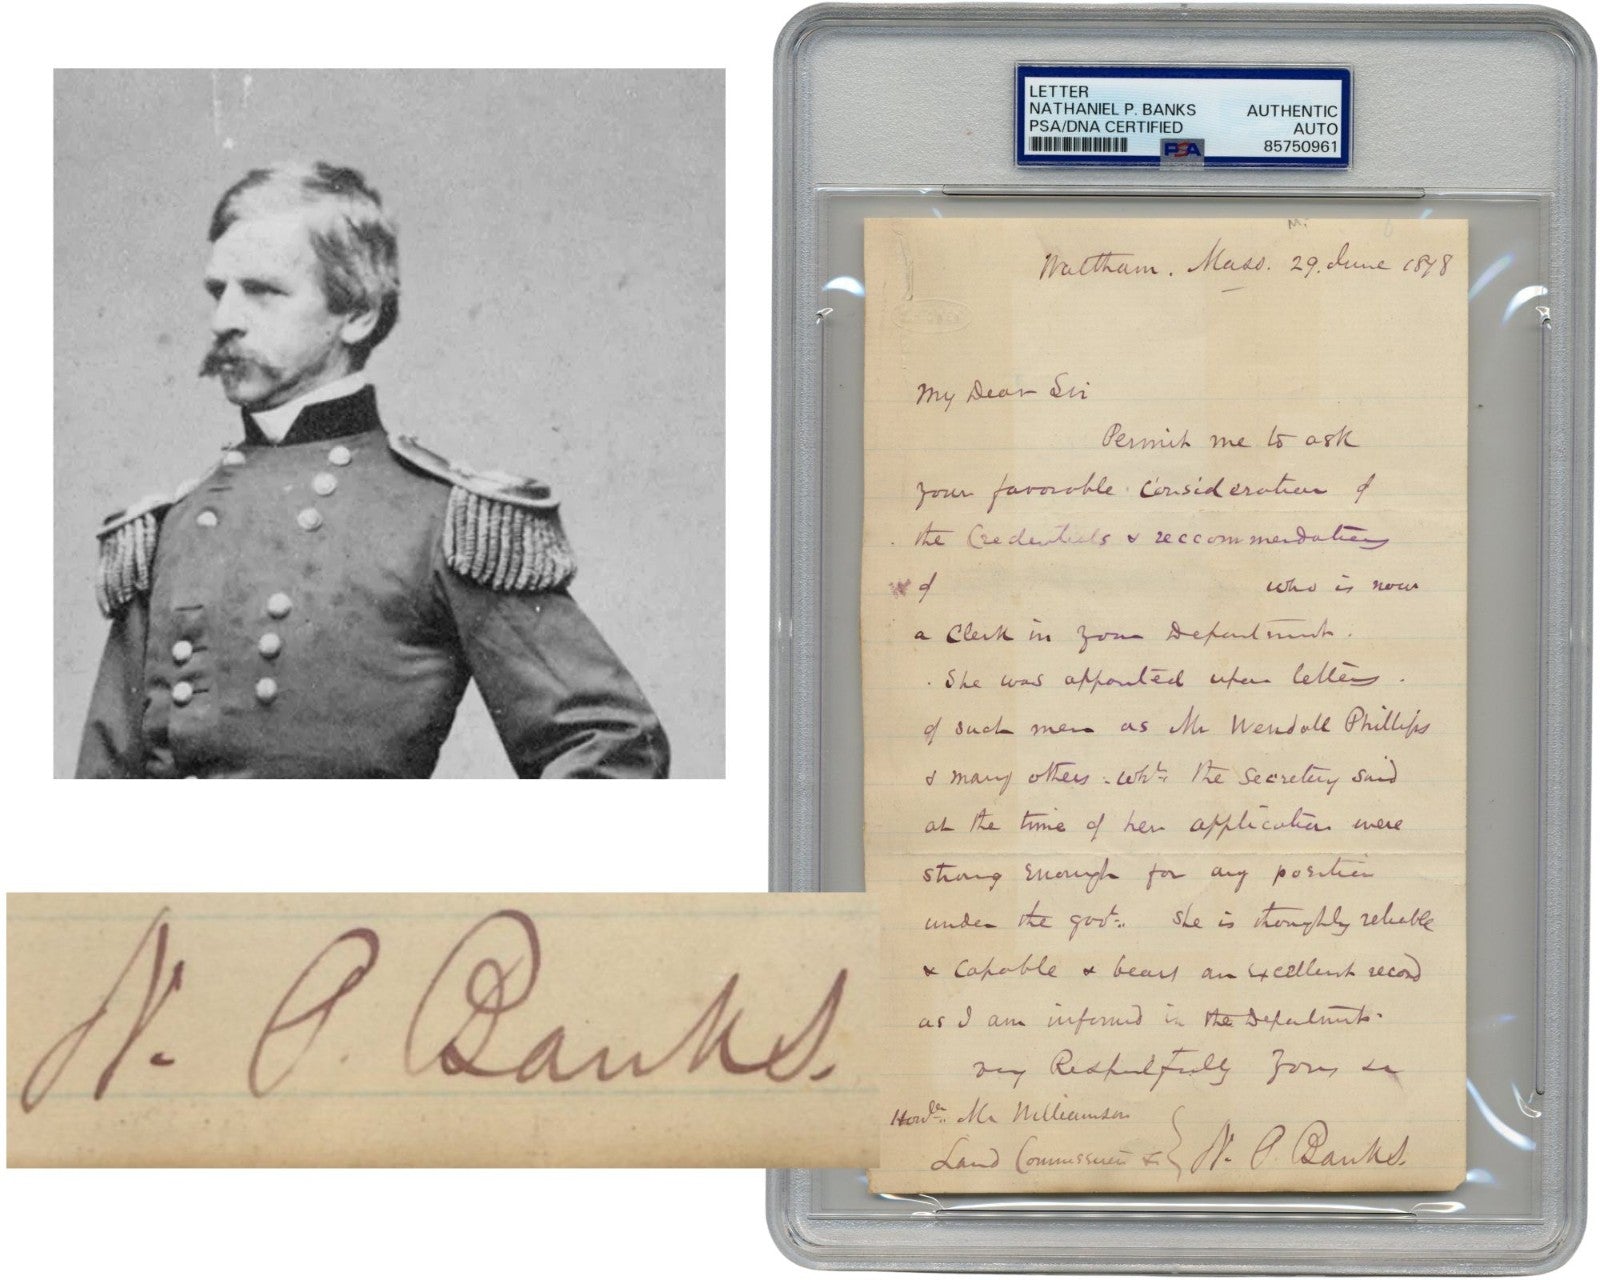 LETTER
NATHANIEL P. BANKS
PSA/DNA CERTIFIED
AUTHENTIC
AUTO
85750961
PSA
M.
Waltham. Mass. 29. June 1878
My Dear Sir
Permit me to ask
your favorable consideration of
the Credentials & reccommendations
of who is now
a Clerk in your Department.
She was appointed upon letters.
of such men as Mr Wendall Phillips
& many others. wh^ch the Secretary said
at the time of her application were
strong enough for any position
under the govt. She is thoughly reliable
& capable & bears an excellent record
as I am informed in the Department.
very Respectfully Yours &c
Mr Williamson
Land Commissioner &c
N. P. Banks.
N. P. Banks.